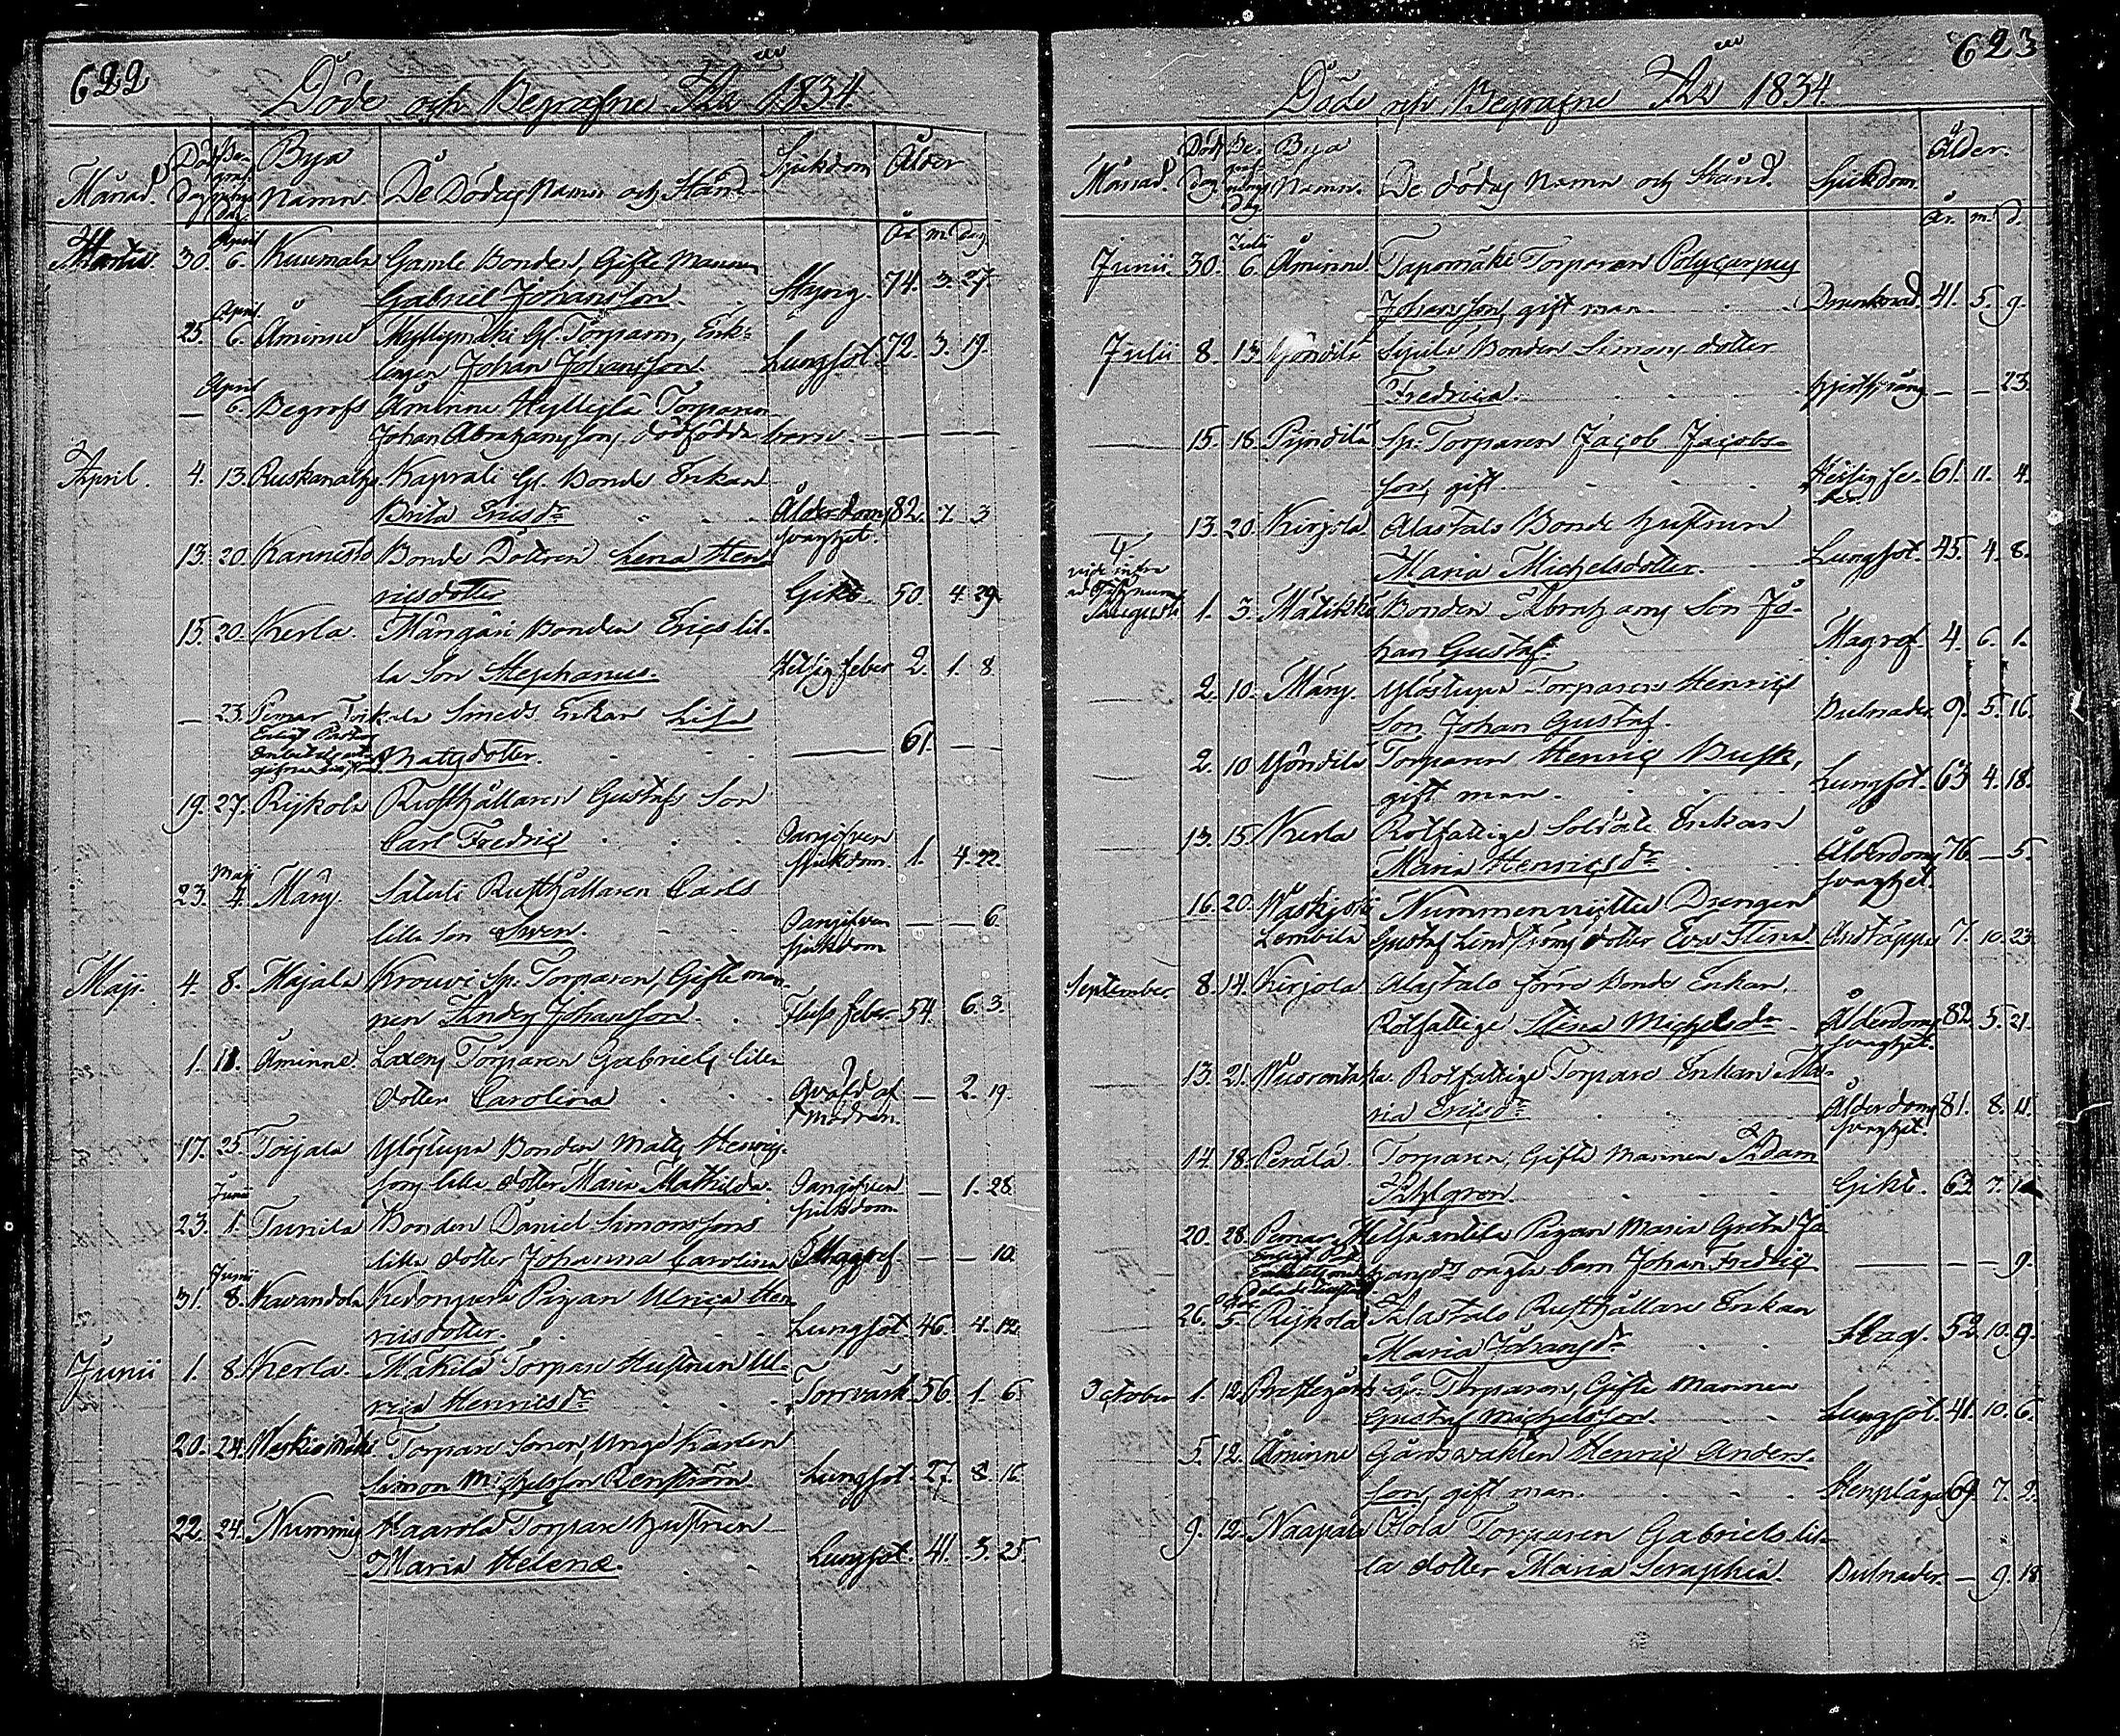 622
Döde och Begrafne År 1834.
Månad. Död Dag Begrafnings Dag Bya Namn De Dödas Namn och Stånd Sjukdom Ålder
År m. Dag.
Martii 30. April 6. Kuumala Gamle Bonden, Gifte Mannen
Gabriel Johansson. 74. 3. 27
25. April 6. Åminne Gl. Torparen, Enk-
lingen Johan Johansson. Lungsot. 72. 3. 19.
— April 6. Begrofs Åminne Torparen
Johan Abrahamssons dödfödda barn — — — —
April. 4. 13. Kaprali Gl. Bonde Enkan
Brita Ericsdr Ålderdoms svaghet. 82. 7. 3
13. 20. Kannisto Bonde Dottren Lena Hen-
ricsdotter Gikt 50. 4. 29
15. 20. Kerla. Mångäri Bonden Erics lil-
la Son Stephanus. Hetsig feber 2. 1. 8.
— 23. Pemar Smeds Enkan Lisa
Mattsdotter. — 61. — —
19. 27. Rijkola Rusthållaren Gustafs Son
Carl Fredric Oangifven sjukdom. 1. 4. 22.
23. Maji 4 Märy. Rusthållaren Carls
lilla Son Swen. Oangifven sjukdom — — 6.
Maji. 4. 8. Majala Krouvi Sp. Torparen, Gifte man-
nen Anders Johansson. Fluss feber 54. 6. 3.
1. 11. Åminne. Laxens Torparen Gabriels lilla
dotter Carolina Qväfd af Modren. — 2. 19.
17. 25. Toijala Ylöstupa Bonden Matts Henrics-
sons lilla dotter Maria Mathilda. Oangifven sjukdom — 1. 28.
23. Junii 1. Turila Bonden Daniel Simonssons
lilla dotter Johanna Carolina Magref. — — 10.
31. Junii 8. Kavandola Pigan Ulrica Hen-
ricsdotter. Lungsot. 46. 4. 12
Junii 1. 8. Kerla. Mäkilä Torpare Hustrun Ul-
rica Henricsdr Torrvärk 56. 1. 6.
20. 24. Torpare Sonen, Unge Karlen
Simon Michelsson Renström. Lungsot. 27. 8. 16.
22. 24. Nummis Haarola Torpare hustrun
Maria Helena. Lungsot. 41. 3. 25.
623
Döde och Begrafne År 1834.
Månad. Död Dag. Begrafnings Dag Bya Namn. De dödas Namn och Stånd. Sjukdom. Ålder.
År. m. d.
Junii 30. Julii 6. Åminne. Tapomäki Torparen Polycarpus
Johansson, gift man. Drunknad. 41. 5. 9.
Julii 8. 13. Yöndilä Bonden Simons dotter
Fredrica. — — 23.
— 15. 18. Pyndilä Sp. Torparen Jacob Jacobs-
son, gift. Hetsig feber. 61. 11. 4.
13. 20. Kirjola. Alastalo Bonde hustrun
Maria Michelsdotter. Lungsot. 45. 4. 8.
Augusti 1. 3. Mälikkälä Bonden Abrahams Son Jo-
han Gustaf. Magref. 4. 6. 1.
— 2. 10. Märy. Ylöstupa Torparen Henrics
Son Johan Gustaf. Bulnader. 9. 5. 16.
— 2. 10 Yöndilä Torparen Henric Busk,
gift man. Lungsot. 63 4. 18.
— 13. 15. Kerla Rotfattige Soldate Enkan
Maria Henricsdr Ålderdoms svaghet. 76. — 5.
16. 20. Waskjoki Lombila Drengen
Gustaf Lindströms dotter Eva Stena. Andtäppa 7. 10. 23.
September. 8. 14. Kirjola Alastalo förre Bonde Enkan,
Rotfattige Stena Michelsdr Ålderdoms svaghet. 82. 5. 21.
13. 21. Wuorentaka. Rotfattige Torpare Enkan Ma-
ria Ericsdr Ålderdoms svaghet. 81. 8. 11.
14. 18. Perälä. Torparen, Gifte Mannen Adam
Ahlgren. Gikt. 63. 7.
20. 28. Pemar Pigan Maria Greta Jo-
hansdrs oägta barn Johan Fredric — — — 9.
26. 5. Rijkola Alastalo Rusthållare Enkan
Maria Johansdr Slag. 52. 10. 9.
October 1. 12. Prestegårds Sp. Torparen, Gifte Mannen
Gustaf Michelsson. Lungsot. 41. 10. 6.
5. 12. Åminne Gårdsvakten Henric Anders-
son, gift man. Stenplåga 69. 7. 2.
9. 12. Naapala Ollola Torparen Gabriels lil-
la dotter Maria Seraphia. Bulnader. — 9. 18.